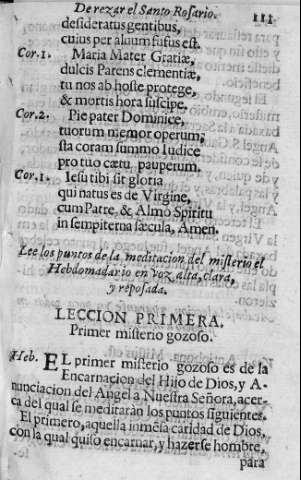 De rezar el Santo Rosario. 111
desideratus gentibus,
cuius per aluum fusus est.
Cor. 1. Maria Mater Gratiæ,
dulcis Parens clementiæ,
tu nos ab hoste protege,
& mortis hora suscipe.
Cor. 2. Pie pater Dominice,
tuorum memor operum,
sta coram summo Iudice
pro tuo cœtu pauperum.
Cor. 1. Iesu tibi sit gloria
qui natus es de Virgine,
cum Patre, & Almo Spiritu
in sempiterna sæcula, Amen.
Lee los puntos de la meditacion del misterio el
Hebdomadario en voz alta, clara,
y reposada.
LECCION PRIMERA.
Primer misterio gozoso.
Heb. EL primer misterio gozoso es de la
Encarnacion del Hijo de Dios, y A-
nunciacion del Angel a Nuestra Señora, acer-
ca del qual se meditaràn los puntos siguientes.
El primero, aquella inmēsa caridad de Dios,
con la qual quiso encarnar, y hazerse hombre,
para